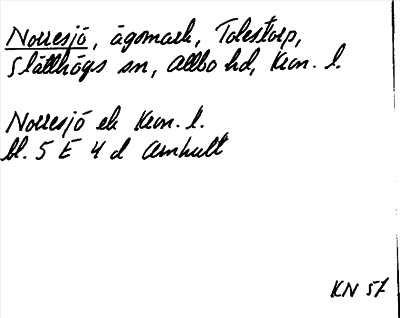 Norresjö, ägomark, Tolestorp,
Slätthögs sn, Allbo hd, Kron. l.
Norresjö ek Kron. l.
bl. 5 E 4 d Arnhult
KN 57